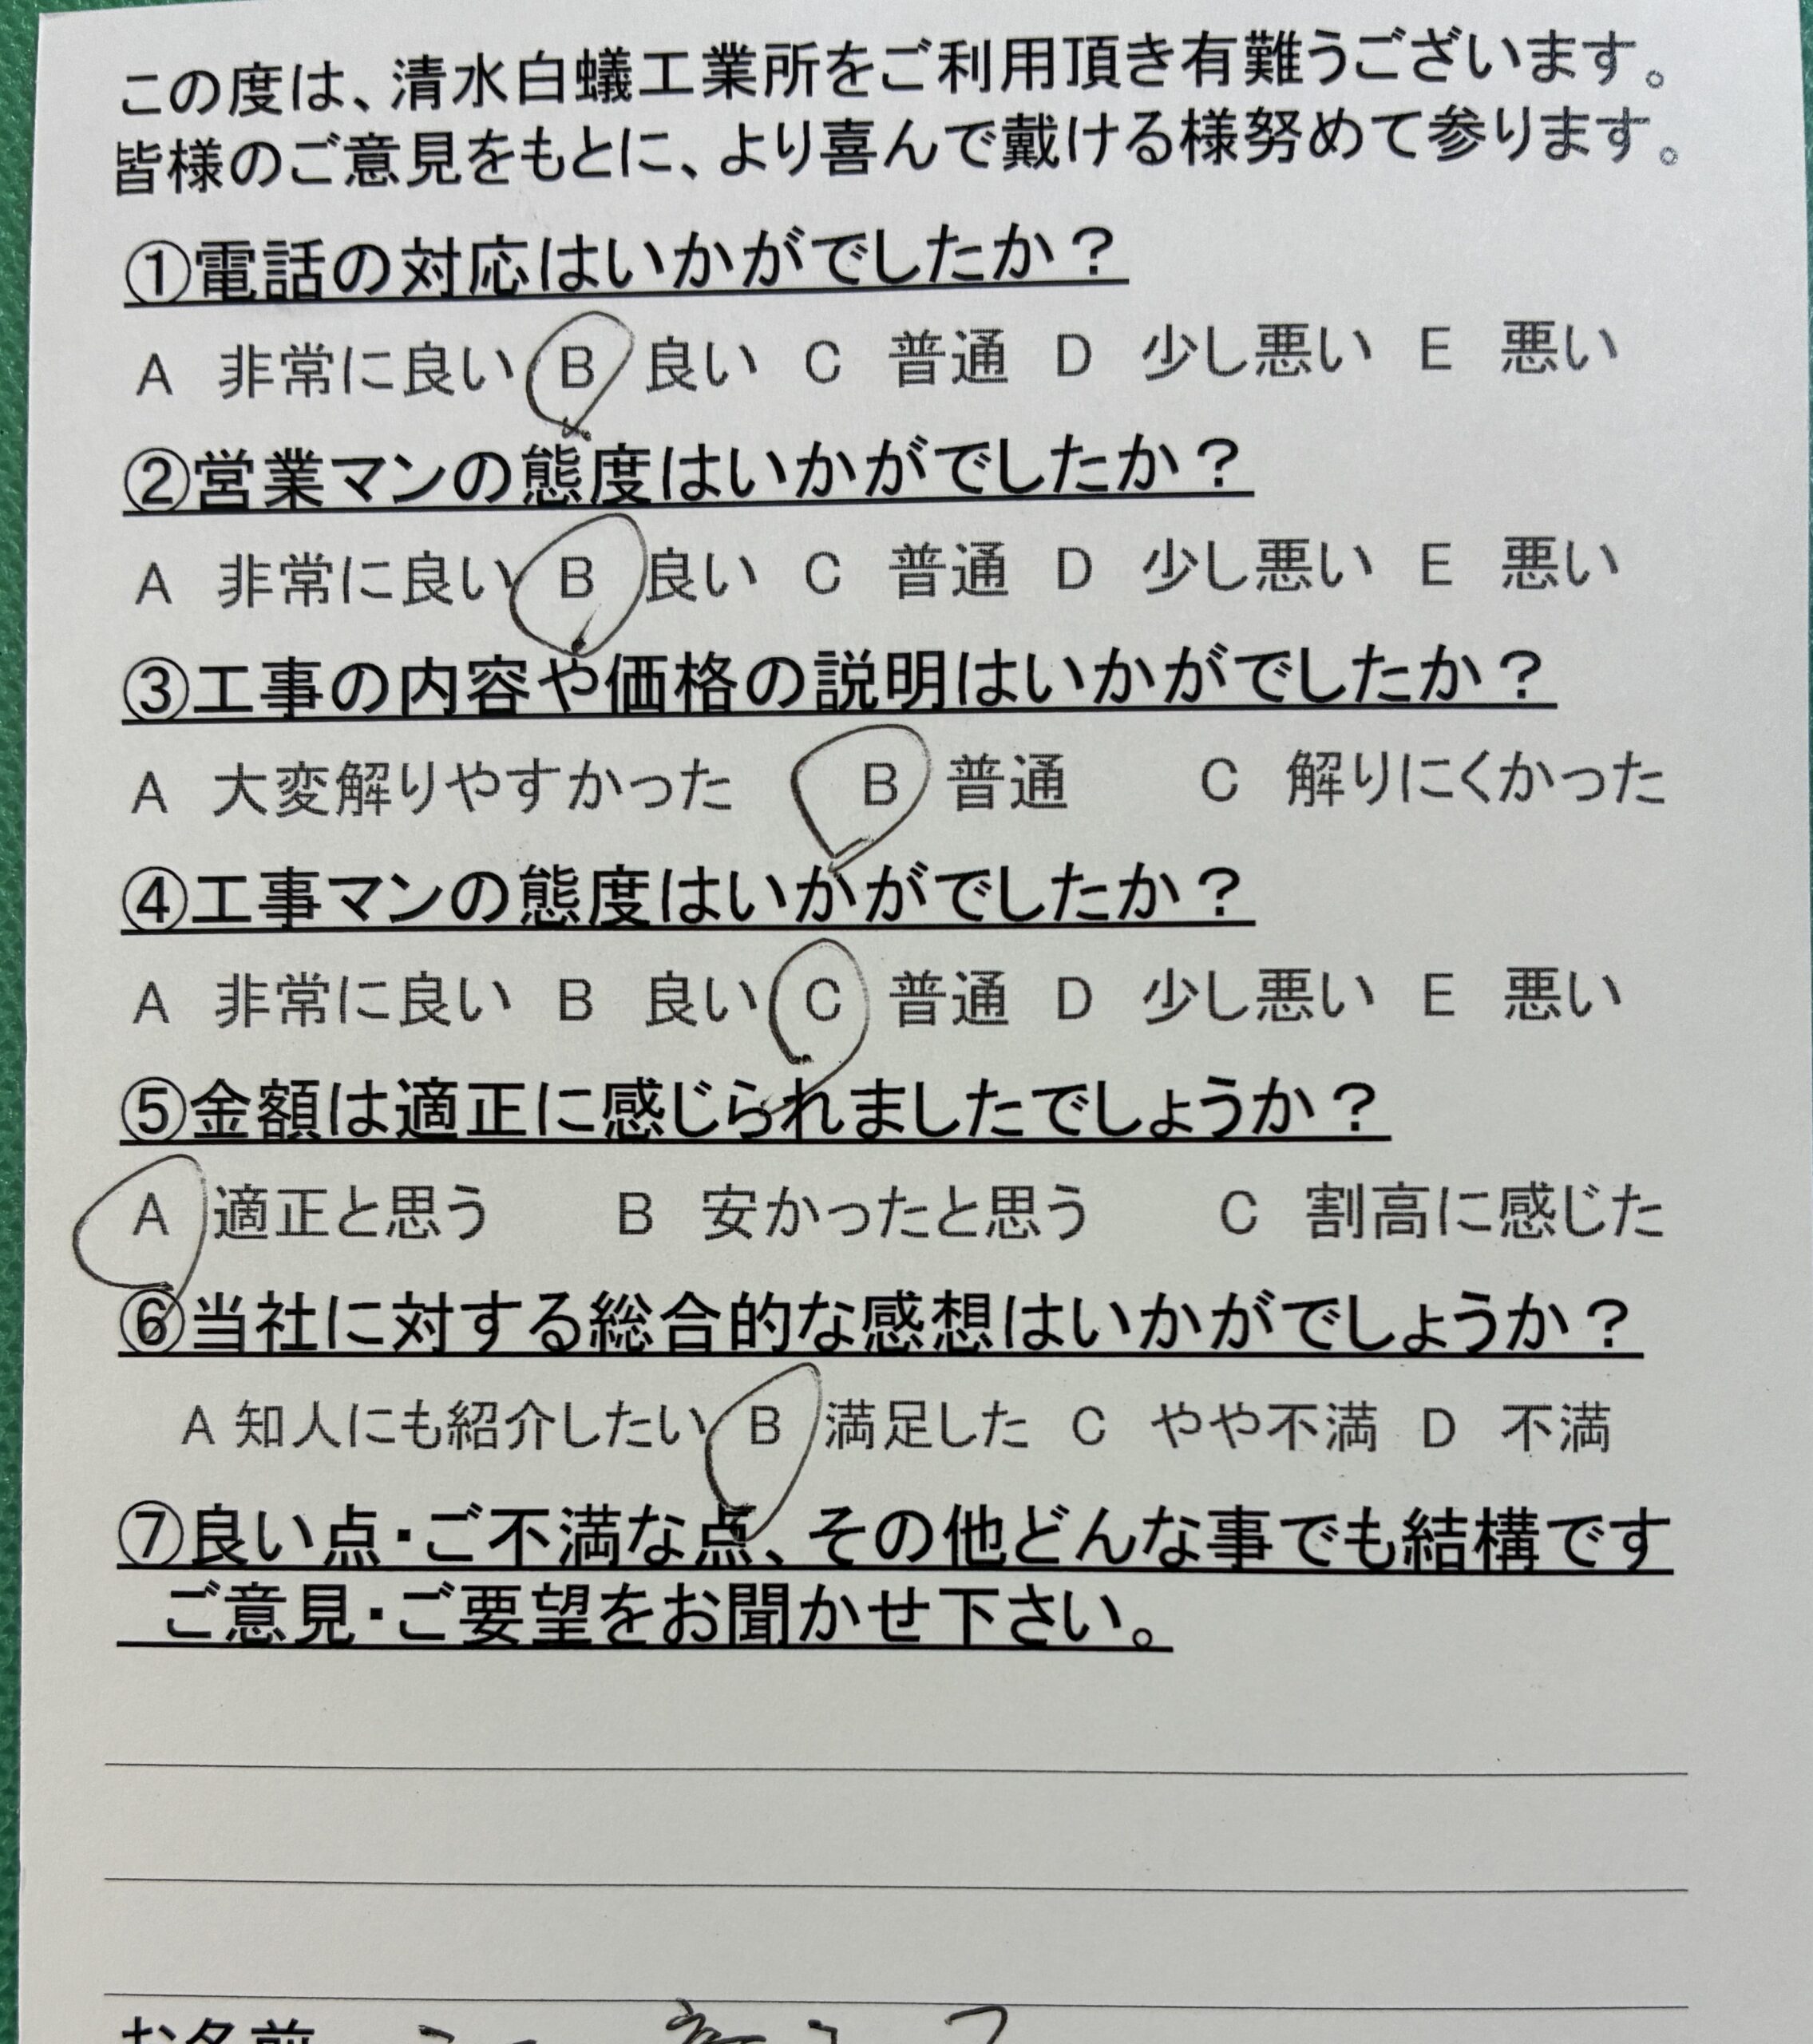 この度は、清水白蟻工業所をご利用頂き有難うございます。
皆様のご意見をもとに、より喜んで戴ける様努めて参ります。
①電話の対応はいかがでしたか？
A 非常に良い B 良い C 普通 D 少し悪い E 悪い
②営業マンの態度はいかがでしたか？
A 非常に良い B 良い C 普通 D 少し悪い E 悪い
③工事の内容や価格の説明はいかがでしたか？
A 大変解りやすかった B 普通 C 解りにくかった
④工事マンの態度はいかがでしたか？
A 非常に良い B 良い C 普通 D 少し悪い E 悪い
⑤金額は適正に感じられましたでしょうか？
A 適正と思う B 安かったと思う C 割高に感じた
⑥当社に対する総合的な感想はいかがでしょうか？
A 知人にも紹介したい B 満足した C やや不満 D 不満
⑦良い点・ご不満な点、その他どんな事でも結構です
ご意見・ご要望をお聞かせ下さい。
お名前